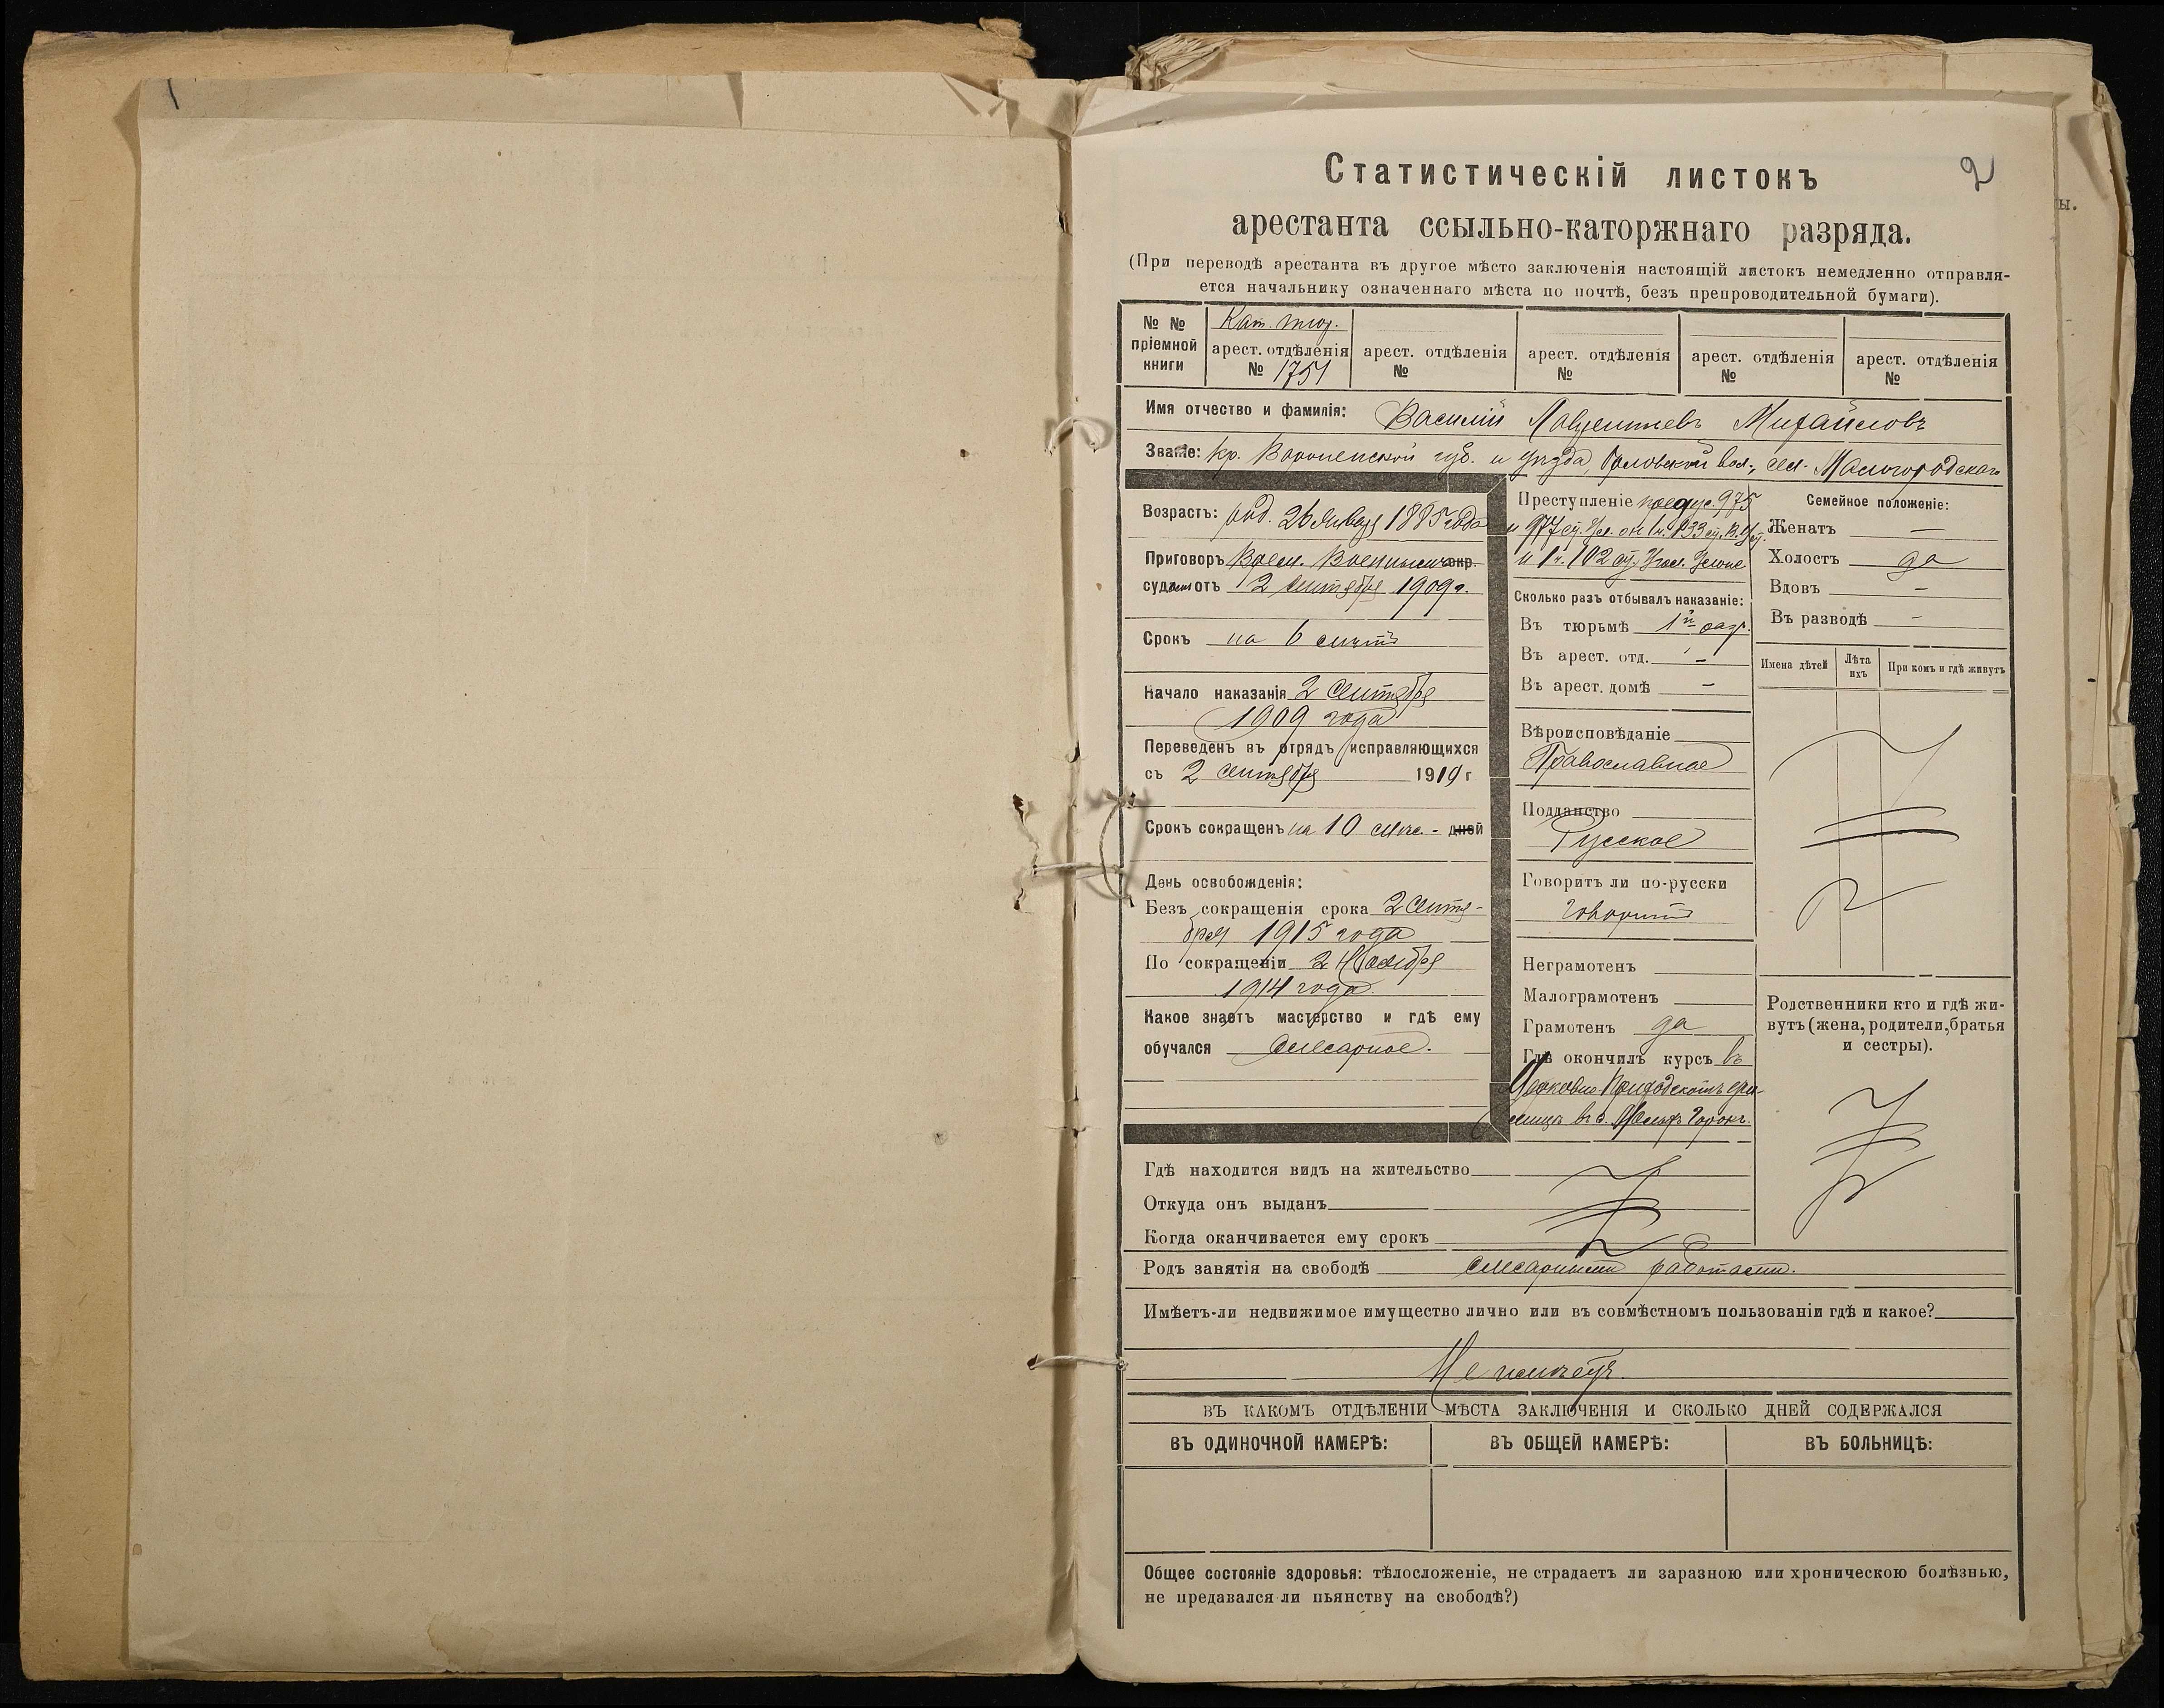 2
Статистическій листокъ
арестанта ссыльно-каторжнаго разряда.
(При переводѣ арестанта въ другое мѣсто заключенія настоящій листокъ немедленно отправля-
ется начальнику означеннаго мѣста по почтѣ, безъ препроводительной бумаги).
№ № пріемной книги
Кат. тюр. арест. отдѣленія № 1751
арест. отдѣленія №
арест. отдѣленія №
арест. отдѣленія №
арест. отдѣленія №
Имя отчество и фамилія: Василій Лаврентьевъ Михайловъ
Званіе: кр. Воронежской губ. и уѣзда, Орловской вол., сел.
Возрастъ: род. 26 Января 1885 года
Приговоръ Врем. Военнымъ окр.
судомъ отъ 2 Сентября 1909 г.
Срокъ на 6 лѣтъ
Начало наказанія 2 Сентября
1909 года
Переведенъ въ отрядъ исправляющихся
съ 2 Сентября 1910 г
Срокъ сокращенъ на 10 мѣс. - дней
День освобожденія:
Безъ сокращенія срока 2 Сентя-
бря 1915 года
По сокращеніи 2 Ноября
1914 года.
Какое знаетъ мастерство и гдѣ ему
обучался Слесарное.
Преступленіе 975
и 977 ст.
и 1 ч. 102 ст. Угол. Улож.
Сколько разъ отбывалъ наказаніе:
Въ тюрьмѣ 1й разъ.
Въ арест. отд. -
Въ арест. домѣ -
Вѣроисповѣданіе
Православное
Подданство
Русское
Говоритъ ли по-русски
говоритъ
Неграмотенъ
Малограмотенъ
Грамотенъ да
Гдѣ окончилъ курсъ въ
Церковно-Приходскомъ учи-
лищѣ въ с.
Семейное положеніе:
Женатъ —
Холостъ да
Вдовъ -
Въ разводѣ -
Имена дѣтей
Лѣта ихъ
При комъ и гдѣ живутъ
Родственники кто и гдѣ жи-
вутъ (жена, родители, братья
и сестры).
Гдѣ находится видъ на жительство
Откуда онъ выданъ
Когда оканчивается ему срокъ
Родъ занятія на свободѣ слесарными работами.
Имѣетъ-ли недвижимое имущество лично или въ совмѣстномъ пользованіи гдѣ и какое?
Не имѣетъ.
ВЪ КАКОМЪ ОТДѢЛЕНІИ МѢСТА ЗАКЛЮЧЕНІЯ И СКОЛЬКО ДНЕЙ СОДЕРЖАЛСЯ
ВЪ ОДИНОЧНОЙ КАМЕРѢ:
ВЪ ОБЩЕЙ КАМЕРѢ:
ВЪ БОЛЬНИЦѢ:
Общее состояніе здоровья: тѣлосложеніе, не страдаетъ ли заразною или хроническою болѣзнью,
не предавался ли пьянству на свободѣ?)